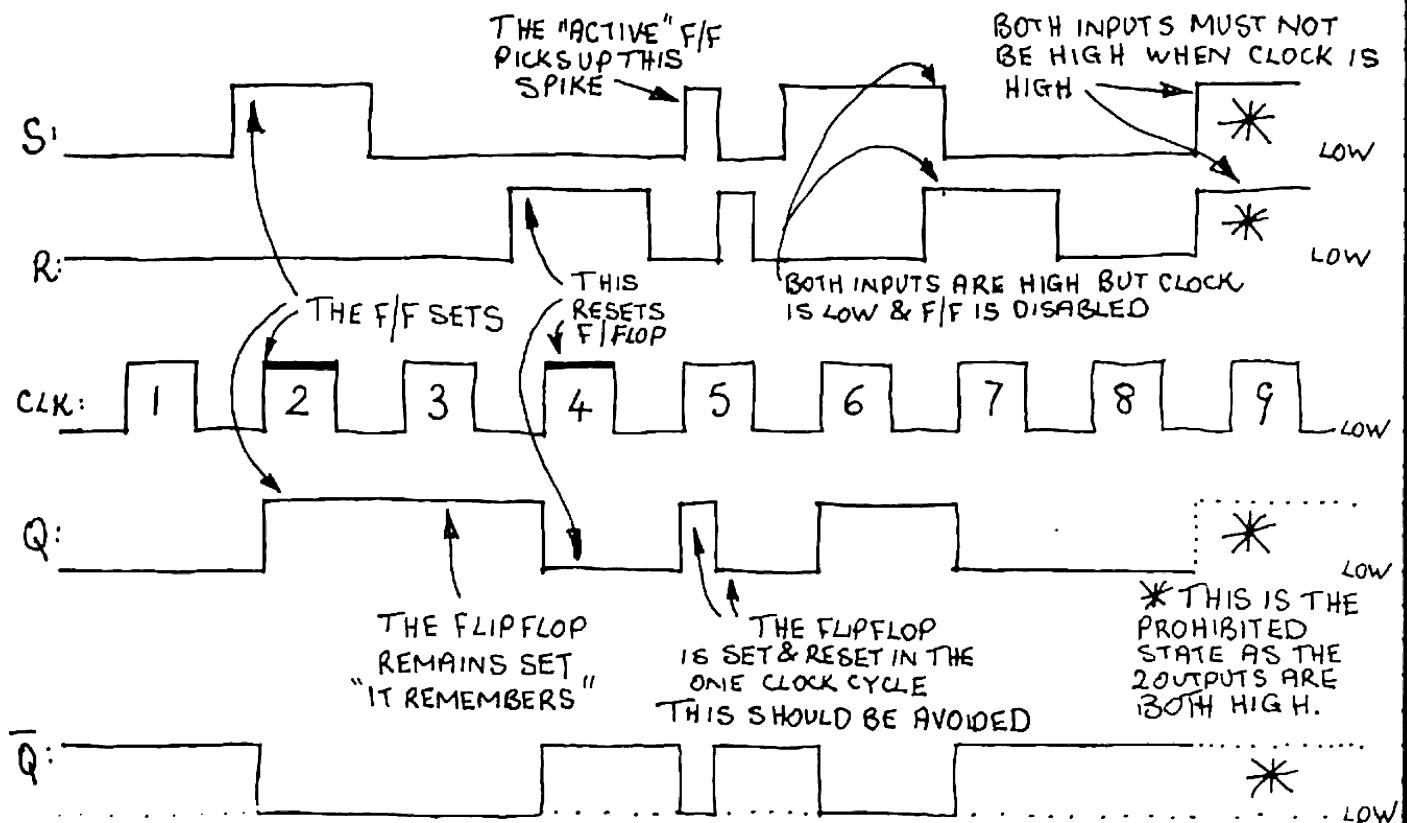 THE "ACTIVE" F/F
PICKS UP THIS
SPIKE
BOTH INPUTS MUST NOT
BE HIGH WHEN CLOCK IS
HIGH
S:
*
LOW
R:
*
LOW
THE F/F SETS
THIS
RESETS
F/FLOP
BOTH INPUTS ARE HIGH BUT CLOCK
IS LOW & F/F IS DISABLED
CLK:
1
2
3
4
5
6
7
8
9
LOW
Q:
*
LOW
THE FLIPFLOP
REMAINS SET
"IT REMEMBERS"
THE FLIPFLOP
IS SET & RESET IN THE
ONE CLOCK CYCLE
THIS SHOULD BE AVOIDED
* THIS IS THE
PROHIBITED
STATE AS THE
2 OUTPUTS ARE
BOTH HIGH.
Q̅:
*
LOW